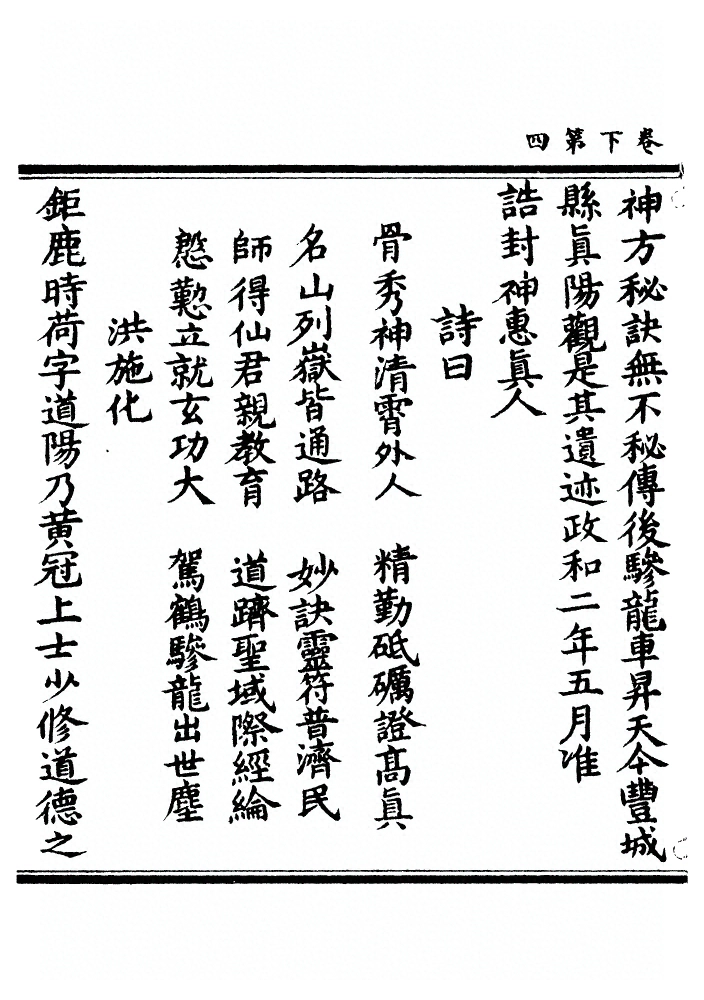 卷下第四
神方秘訣無不秘傳後驂龍車昇天今豐城
縣眞陽觀是其遺迹政和二年五月准
誥封神惠眞人
詩曰
骨秀神清霄外人　精勤砥礪證高眞
名山列嶽皆通路　妙訣靈符普濟民
師得仙君親教育　道躋聖域際經綸
慇懃立就玄功大　駕鶴驂龍出世塵
洪施化
鉅鹿時荷字道陽乃黃冠上士少修道德之